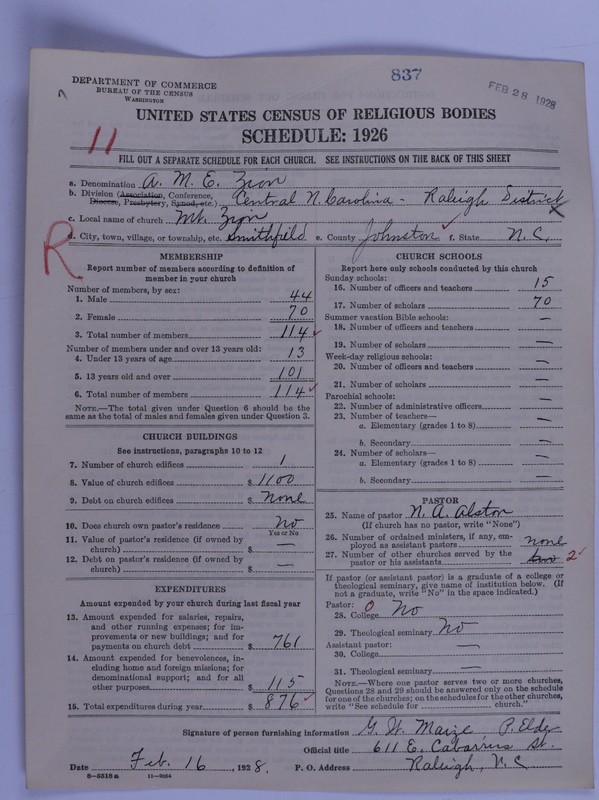 837
FEB 28 1928
DEPARTMENT OF COMMERCE
BUREAU OF THE CENSUS
WASHINGTON
UNITED STATES CENSUS OF RELIGIOUS BODIES
SCHEDULE: 1926
11
FILL OUT A SEPARATE SCHEDULE FOR EACH CHURCH. SEE INSTRUCTIONS ON THE BACK OF THIS SHEET
a. Denomination A. M. E. Zion
b. Division (Association, Conference, Diocese, Presbytery, Synod, etc.) Central N. Carolina - Raleigh District
c. Local name of church Mt. Zion
d. City, town, village, or township, etc. Smithfield e. County Johnston f. State N. C.
R
MEMBERSHIP
Report number of members according to definition of
member in your church
Number of members, by sex:
1. Male 44
2. Female 70
3. Total number of members 114
Number of members under and over 13 years old:
4. Under 13 years of age 13
5. 13 years old and over 101
6. Total number of members 114
NOTE.—The total given under Question 6 should be the
same as the total of males and females given under Question 3.
CHURCH BUILDINGS
See instructions, paragraphs 10 to 12
7. Number of church edifices 1
8. Value of church edifices $ 1100
9. Debt on church edifices $ None
10. Does church own pastor's residence No
Yes or No
11. Value of pastor's residence (if owned by
church) $ —
12. Debt on pastor's residence (if owned by
church) $ —
EXPENDITURES
Amount expended by your church during last fiscal year
13. Amount expended for salaries, repairs,
and other running expenses; for im-
provements or new buildings; and for
payments on church debt $ 761
14. Amount expended for benevolences, in-
cluding home and foreign missions; for
denominational support; and for all
other purposes $ 115
15. Total expenditures during year $ 876
CHURCH SCHOOLS
Report here only schools conducted by this church
Sunday schools:
16. Number of officers and teachers 15
17. Number of scholars 70
Summer vacation Bible schools:
18. Number of officers and teachers —
19. Number of scholars —
Week-day religious schools:
20. Number of officers and teachers —
21. Number of scholars —
Parochial schools:
22. Number of administrative officers —
23. Number of teachers—
a. Elementary (grades 1 to 8) —
b. Secondary —
24. Number of scholars—
a. Elementary (grades 1 to 8) —
b. Secondary —
PASTOR
25. Name of pastor N. A. Alston
(If church has no pastor, write "None")
26. Number of ordained ministers, if any, em-
ployed as assistant pastors none
27. Number of other churches served by the
pastor or his assistants two 2
If pastor (or assistant pastor) is a graduate of a college or
theological seminary, give name of institution below. (If
not a graduate, write "No" in the space indicated.)
Pastor: 0
28. College No
29. Theological seminary No
Assistant pastor:
30. College —
31. Theological seminary —
NOTE.—Where one pastor serves two or more churches,
Questions 28 and 29 should be answered only on the schedule
for one of the churches; on the schedules for the other churches,
write "See schedule for church."
Signature of person furnishing information G. W. Maize, P. Elder
Official title 611 E. Cabarrus St.
Date Feb. 16, 1928. P. O. Address Raleigh, N. C
8—5518a 11—9264